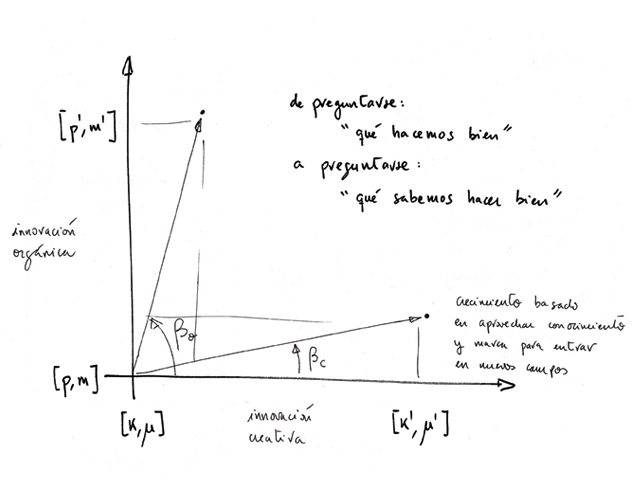 de preguntarse:
"qué hacemos bien"
a preguntarse:
"qué sabemos hacer bien"
[p', m']
innovación
orgánica
βo
βc
crecimiento basado
en aprovechar conocimiento
y marca para entrar
en nuevos campos
[p, m]
[K, μ]
innovación
creativa
[K', μ']